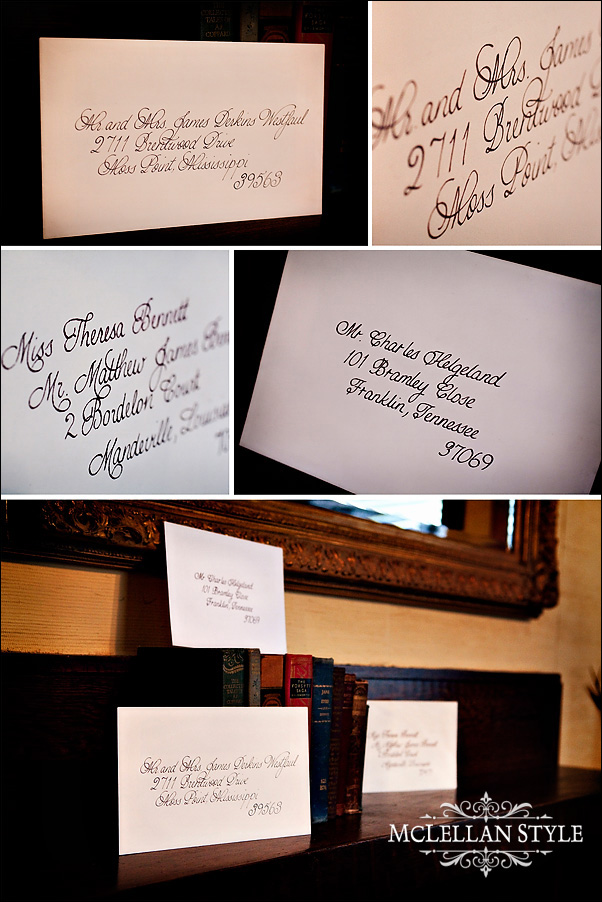 Mr and Mrs. James Derkins Westfaul
2711 Brentwood Drive
Moss Point, Mississippi
39563
Mr and Mrs. James
2711 Brentwood D
Moss Point, Missi
Miss Theresa Bennett
Mr. Matthew James Ben
2 Bordelon Court
Mandeville, Louisi
70
Mr. Charles Helgeland
101 Bramley Close
Franklin, Tennessee
37069
Mr Charles Helgeland
101 Bramley Close
Franklin, Tennessee
37069
THE
FORSYTE
SAGA
Mr and Mrs. James Derkins Westfaul
2711 Brentwood Drive
Moss Point, Mississippi
39563
Miss Theresa Bennett
Mr Matthew James Bennett
2 Bordelon Court
Mandeville, Louisiana
MCLELLAN STYLE